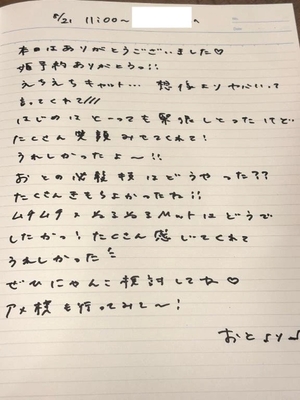 8/21 11:00〜 へ
本日はありがとうございました♡
姫予約ありがとうっ!!
えちえちギャルト… 想像よりヤバいって
言ってくれて///
はじめはとーっても緊張しとったけど
たくさん笑顔みせてくれて!
うれしかったよ〜!!
おとの必殺技はどうやった??
たくさんきもちよかったね!!
ムチムチ×ぬるぬるMットはどうで
したかっ! たくさん感じてくれて
うれしかった
ぜひにゃんこ検討してね♡
アメ横も行ってみて〜!
おとより♪